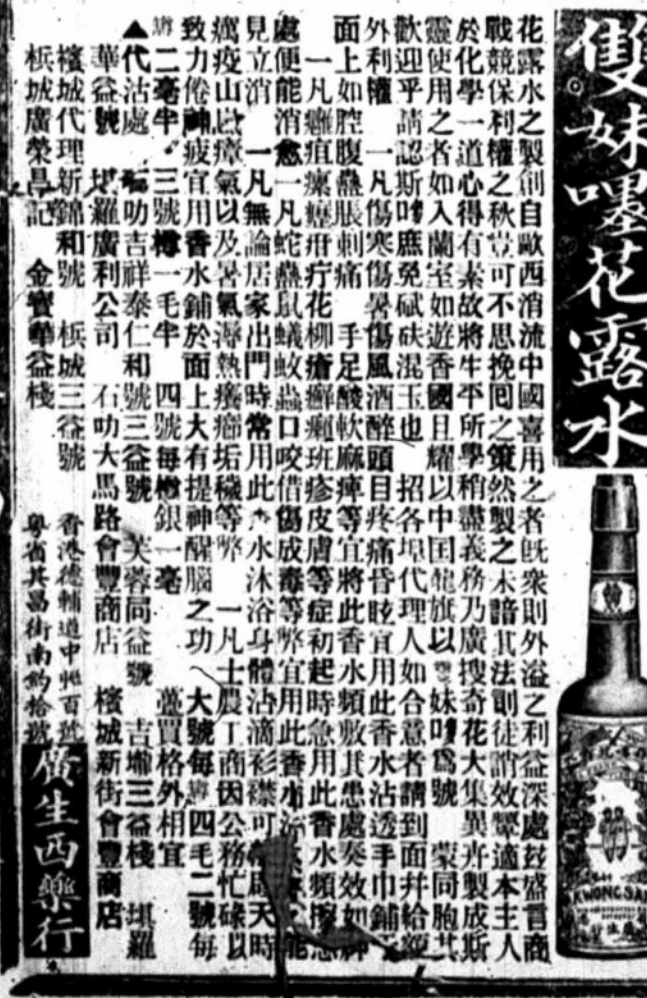 雙妹嘜花露水
花露水之製創自歐西消流中國喜用之者既衆則外溢之利益深處玆盛言商
戰競保利權之秋豈可不思挽囘之策然製之未諳其法則徒誚效顰適本主人
於化學一道心得有素故將生平所學稍盡義務乃廣搜奇花大集異卉製成斯
靈使用之者如入蘭室如遊香國且耀以中囯龍旗以雙妹嘜爲號 蒙同胞共
歡迎乎請認斯嘜庶免碔砆混玉也 招各埠代理人如合意者請到面幷給額
外利權 一凡傷寒傷暑傷風酒醉頭目疼痛昏眩宜用此香水沾透手巾鋪
面上如腔腹蠱脹刺痛 手足酸軟麻痺等宜將此香水頻敷其患處奏效如神
一凡癰疽瘰癧疳疔花柳瘡癬癩班疹皮膚等症初起時急用此香水頻擦患
處便能消愈一凡蛇蠱鼠蟻蚊蟲口咬借傷成毒等弊宜用此香水 能
見立消 一凡無論居家出門時常用此香水沐浴身體沾滴衫襟可 天時
癘疫山嵐瘴氣以及暑氣濕熱癢癤垢穢等弊 一凡士農工商因公務忙碌以
致力倦神疲宜用香水鋪於面上大有提神醒腦之功 大號每罇四毛二號每
罇二毫半 三號樽一毛半 四號每樽銀一毫 躉買格外相宜
▲代沽處 叻吉祥泰仁和號三益號 芙蓉同益號 吉壠三益棧 堪羅
華益號 堪羅廣利公司 石叻大馬路會豐商店 檳城新街會豐商店
檳城代理新錦和號 檳城三益號
檳城廣榮昌記 金寶華益棧
香港德輔道中 百號
粤省其昌街南約拾號
廣生西藥行
KWONG SAN